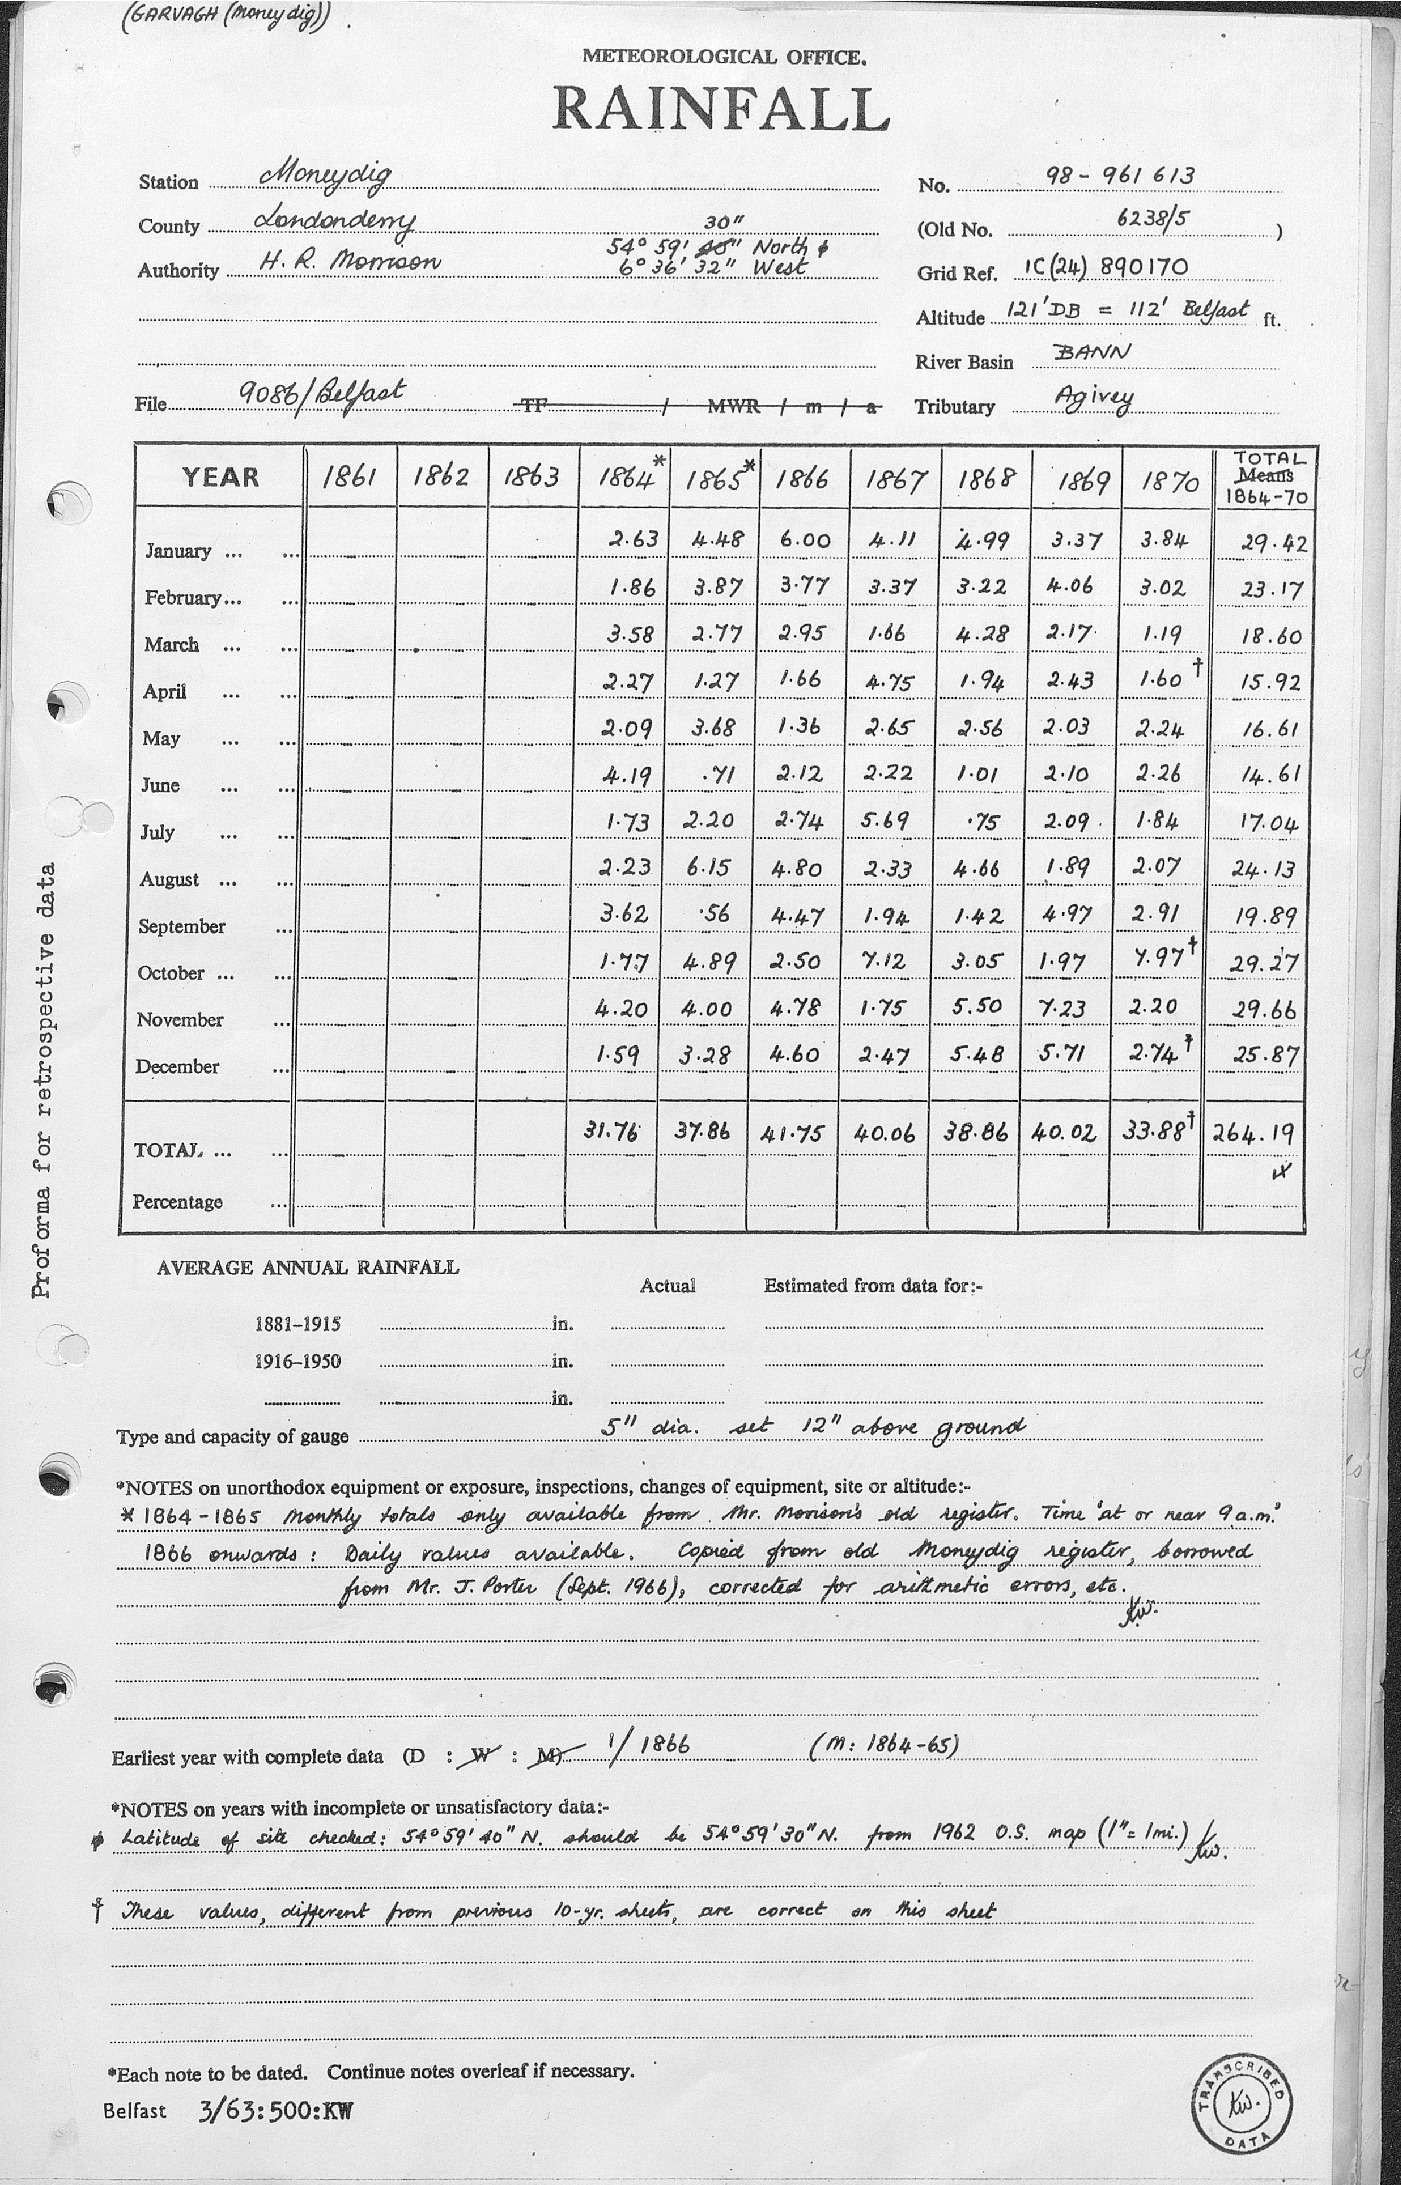 (GARVAGH (Moneydig))
METEOROLOGICAL OFFICE.
RAINFALL
Station Moneydig No. 98 - 961 613
County Londonderry 30" (Old No. 6238/5 )
Authority H. R. Morrison 54° 59' 40" North ϕ 6° 36' 32" West Grid Ref. IC(24) 890170
Altitude 121' DB = 112' Belfast ft.
River Basin BANN
File 9086/Belfast TF / MWR / m / a Tributary Agivey
YEAR 1861 1862 1863 1864* 1865* 1866 1867 1868 1869 1870 TOTAL Means 1864-70
January ... ... 2.63 4.48 6.00 4.11 4.99 3.37 3.84 29.42
February ... ... 1.86 3.87 3.77 3.37 3.22 4.06 3.02 23.17
March ... ... 3.58 2.77 2.95 1.66 4.28 2.17 1.19 18.60
April ... ... 2.27 1.27 1.66 4.75 1.94 2.43 1.60† 15.92
May ... ... 2.09 3.68 1.36 2.65 2.56 2.03 2.24 16.61
June ... ... 4.19 .71 2.12 2.22 1.01 2.10 2.26 14.61
July ... ... 1.73 2.20 2.74 5.69 .75 2.09 1.84 17.04
August ... ... 2.23 6.15 4.80 2.33 4.66 1.89 2.07 24.13
September ... 3.62 .56 4.47 1.94 1.42 4.97 2.91 19.89
October ... ... 1.77 4.89 2.50 7.12 3.05 1.97 7.97† 29.27
November ... 4.20 4.00 4.78 1.75 5.50 7.23 2.20 29.66
December ... 1.59 3.28 4.60 2.47 5.48 5.71 2.74† 25.87
TOTAL ... ... 31.76 37.86 41.75 40.06 38.86 40.02 33.88† 264.19
Percentage ...
Proforma for retrospective data
AVERAGE ANNUAL RAINFALL
Actual Estimated from data for:-
1881–1915 in.
1916–1950 in.
in.
Type and capacity of gauge 5" dia. set 12" above ground
*NOTES on unorthodox equipment or exposure, inspections, changes of equipment, site or altitude:-
* 1864-1865 Monthly totals only available from Mr. Morrison's old register. Time 'at or near 9 a.m.'
1866 onwards: Daily values available. Copied from old Moneydig register, borrowed
from Mr. J. Porter (Sept. 1966), corrected for arithmetic errors, etc.
KW.
Earliest year with complete data (D : W : M) 1/1866 (M: 1864-65)
*NOTES on years with incomplete or unsatisfactory data:-
ϕ Latitude of site checked: 54° 59' 40" N. should be 54° 59' 30" N. from 1962 O.S. map (1" = 1mi.) KW.
† These values, different from previous 10-yr. sheets, are correct on this sheet
*Each note to be dated. Continue notes overleaf if necessary.
Belfast 3/63:500:KW
TRANSCRIBED KW. DATA